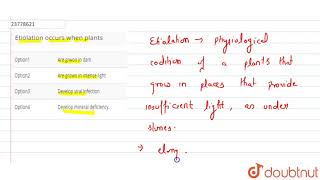 23778621
Etiolation occurs when plants
Option1 Are grown in dark
Option2 Are grown in intense light
Option3 Develop viral infection
Option4 Develop mineral deficiency.
Etiolation → physiological
codition of a plants that
grow in places that provide
insufficient light, as under
stones.
→ elong.
doubtnut